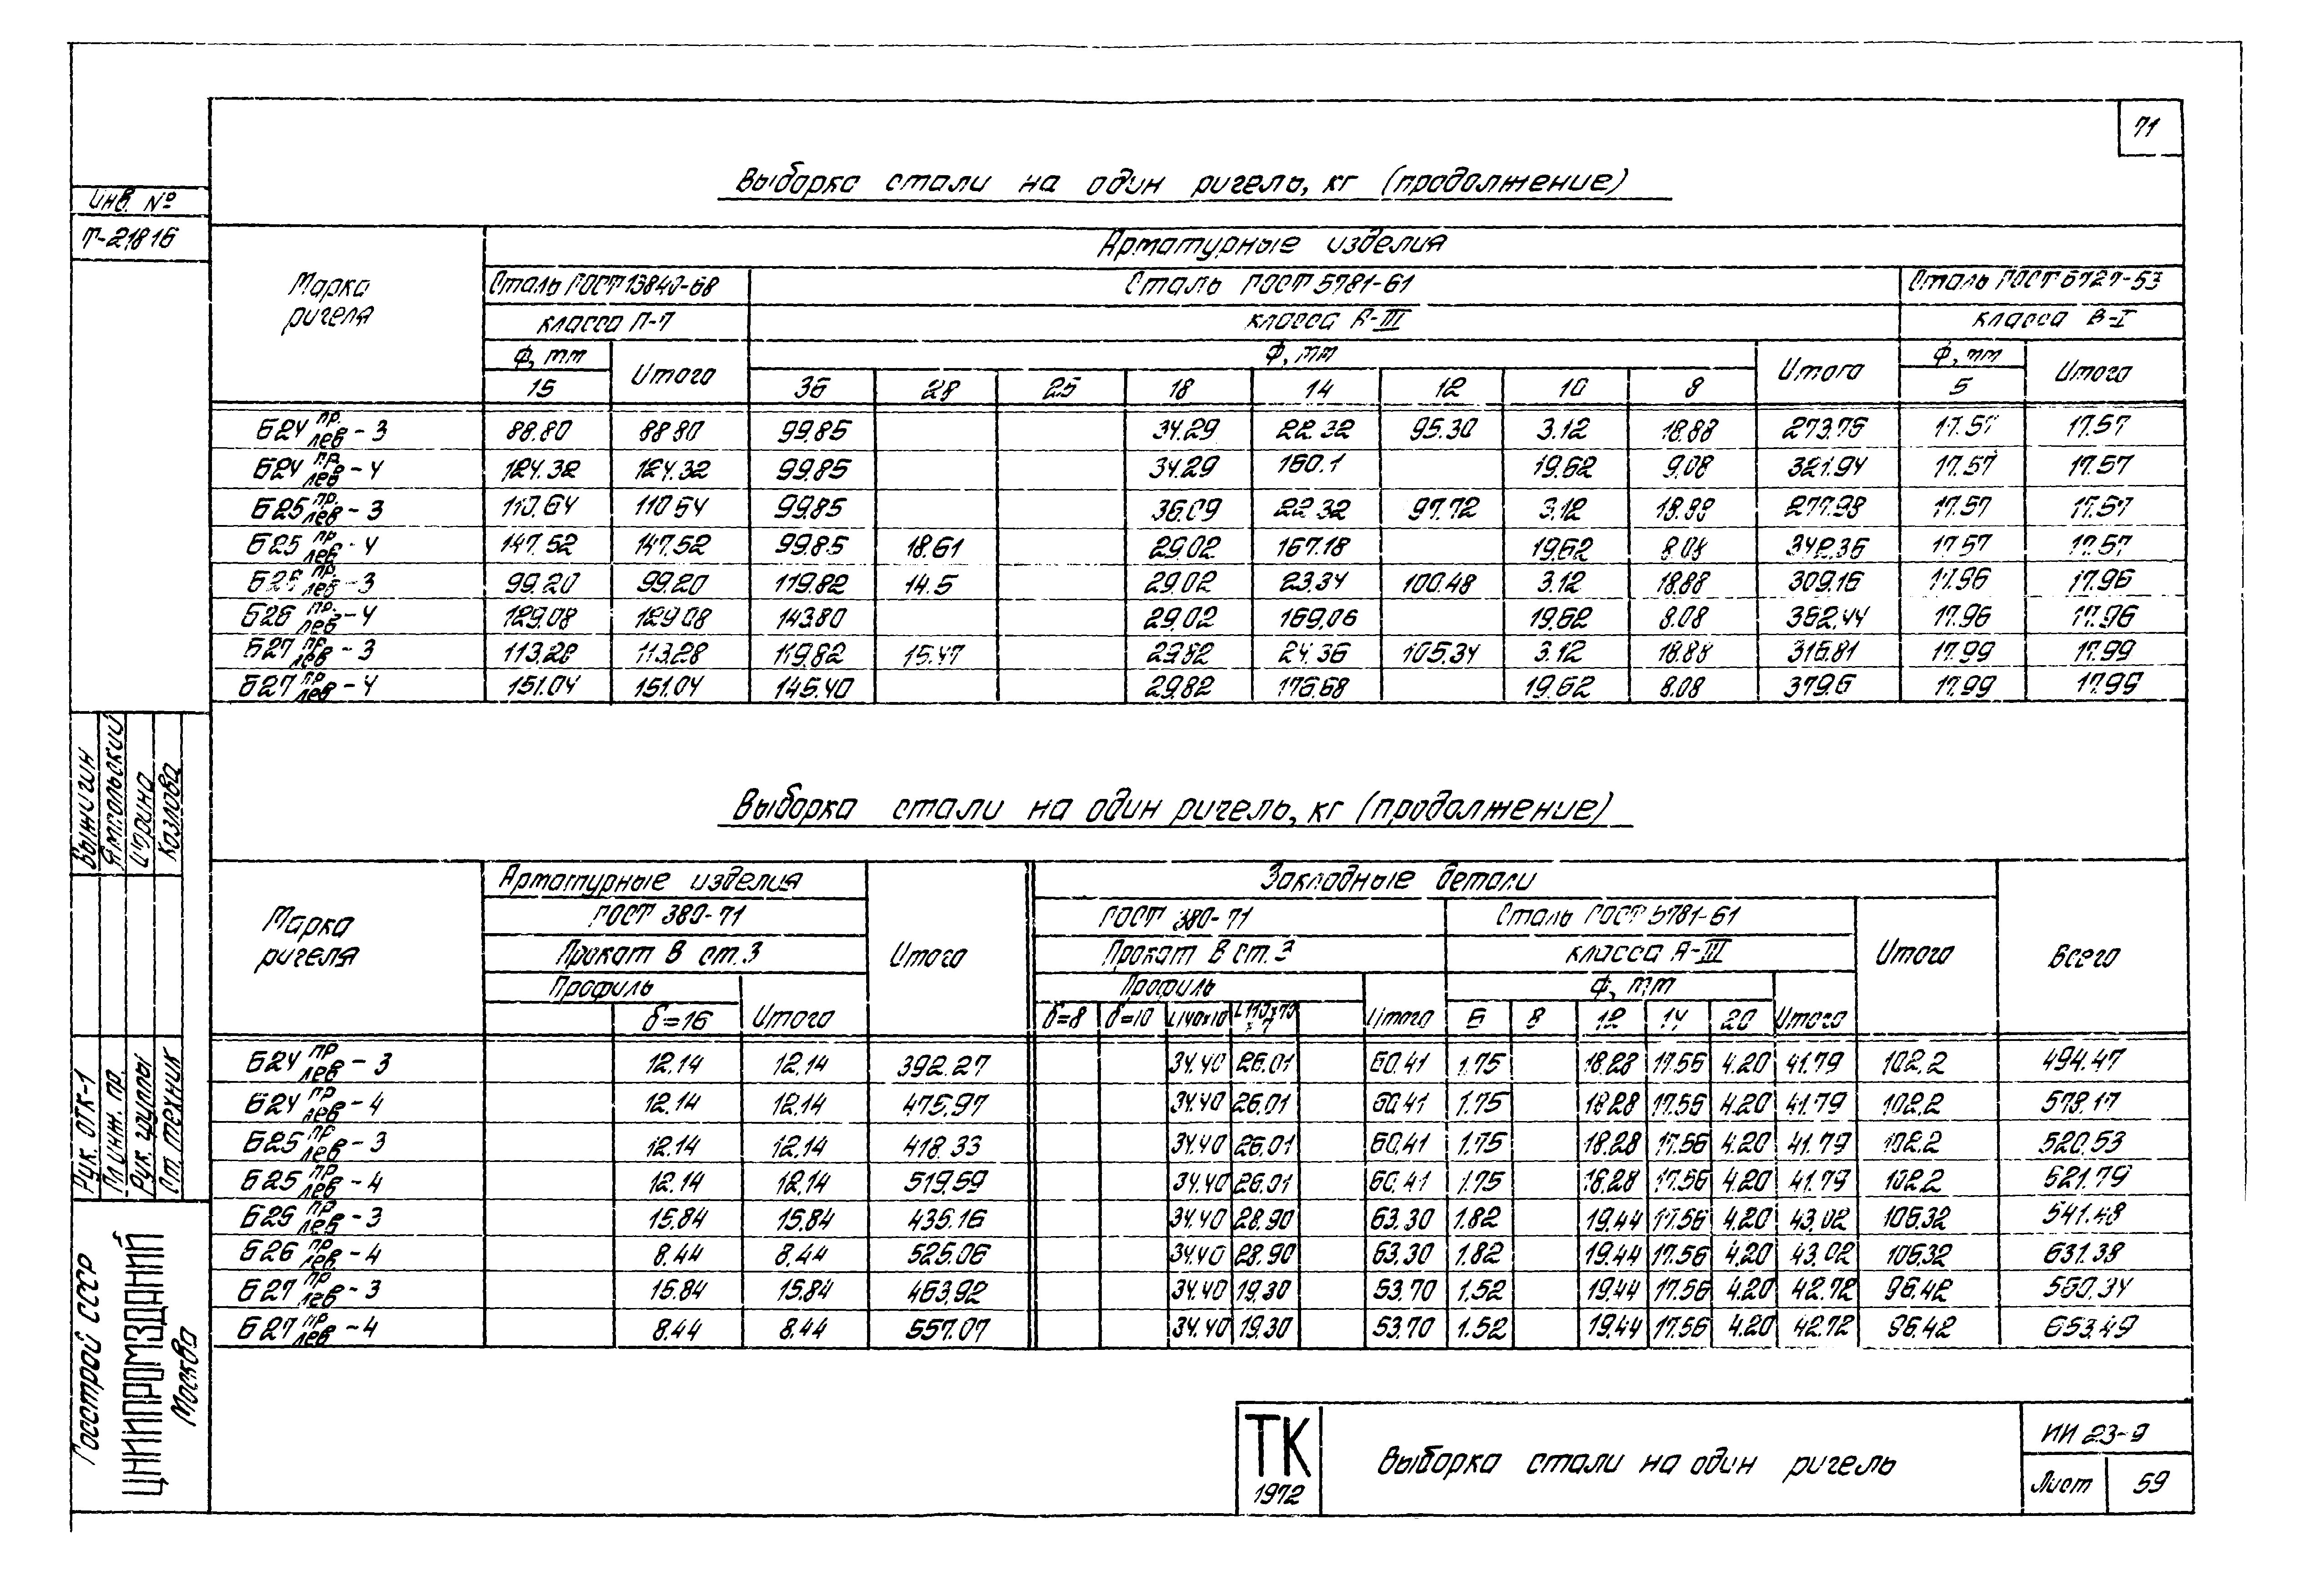 71
Выборка стали на один ригель, кг (продолжение)
Инв. №
Т-21816
Марка ригеля
Арматурные изделия
Сталь ГОСТ 13840-68 Сталь ГОСТ 5781-61 Сталь ГОСТ 6727-53
класса П-7 класса А-III класса В-I
Ф, мм Итого Ф, мм Итого Ф, мм Итого
15 36 28 25 18 14 12 10 8 5
Б24 пр. лев - 3 88.80 88.80 99.85 34.29 22.32 95.30 3.12 18.88 273.76 17.57 17.57
Б24 пр. лев - 4 124.32 124.32 99.85 34.29 160.1 19.62 9.08 321.94 17.57 17.57
Б25 пр. лев - 3 110.64 110.64 99.85 36.09 22.32 97.72 3.12 18.88 277.98 17.57 17.57
Б25 пр. лев - 4 147.52 147.52 99.85 18.61 29.02 167.18 19.62 8.08 342.36 17.57 17.57
Б26 пр. лев - 3 99.20 99.20 119.82 14.5 29.02 23.34 100.48 3.12 18.88 309.16 17.96 17.96
Б26 пр. лев - 4 129.08 129.08 143.80 29.02 169.06 19.62 8.08 362.44 17.96 17.96
Б27 пр. лев - 3 113.28 113.28 119.82 15.47 29.82 24.36 105.34 3.12 18.88 316.81 17.99 17.99
Б27 пр. лев - 4 151.04 151.04 145.40 29.82 176.68 19.62 8.08 379.6 17.99 17.99
Выборка стали на один ригель, кг (продолжение)
Марка ригеля
Арматурные изделия Итого Закладные детали Итого Всего
ГОСТ 380-71 ГОСТ 380-71 Сталь ГОСТ 5781-61
Прокат В ст.3 Прокат В ст.3 класса А-III
Профиль Итого Профиль Итого Ф, мм Итого
δ=16 δ=8 δ=10 L140х10 L110х70х7 6 8 12 14 20
Б24 пр лев - 3 12.14 12.14 392.27 34.40 26.01 60.41 1.75 18.28 17.56 4.20 41.79 102.2 494.47
Б24 пр лев - 4 12.14 12.14 475.97 34.40 26.01 60.41 1.75 18.28 17.56 4.20 41.79 102.2 578.17
Б25 пр лев - 3 12.14 12.14 418.33 34.40 26.01 60.41 1.75 18.28 17.56 4.20 41.79 102.2 520.53
Б25 пр лев - 4 12.14 12.14 519.59 34.40 26.01 60.41 1.75 18.28 17.56 4.20 41.79 102.2 621.79
Б26 пр лев - 3 15.84 15.84 435.16 34.40 28.90 63.30 1.82 19.44 17.56 4.20 43.02 106.32 541.48
Б26 пр лев - 4 8.44 8.44 525.06 34.40 28.90 63.30 1.82 19.44 17.56 4.20 43.02 106.32 631.38
Б27 пр лев - 3 15.84 15.84 463.92 34.40 19.30 53.70 1.52 19.44 17.56 4.20 42.72 96.42 560.34
Б27 пр лев - 4 8.44 8.44 557.07 34.40 19.30 53.70 1.52 19.44 17.56 4.20 42.72 96.42 653.49
Рук. ОТК-1 Выжигин
Гл. инж. пр. Ямпольский
Рук. группы
Ст. техник Козлова
Госстрой СССР
ЦНИИПРОМЗДАНИЙ
Москва
ТК
1972
Выборка стали на один ригель
ИИ 23-9
Лист 59